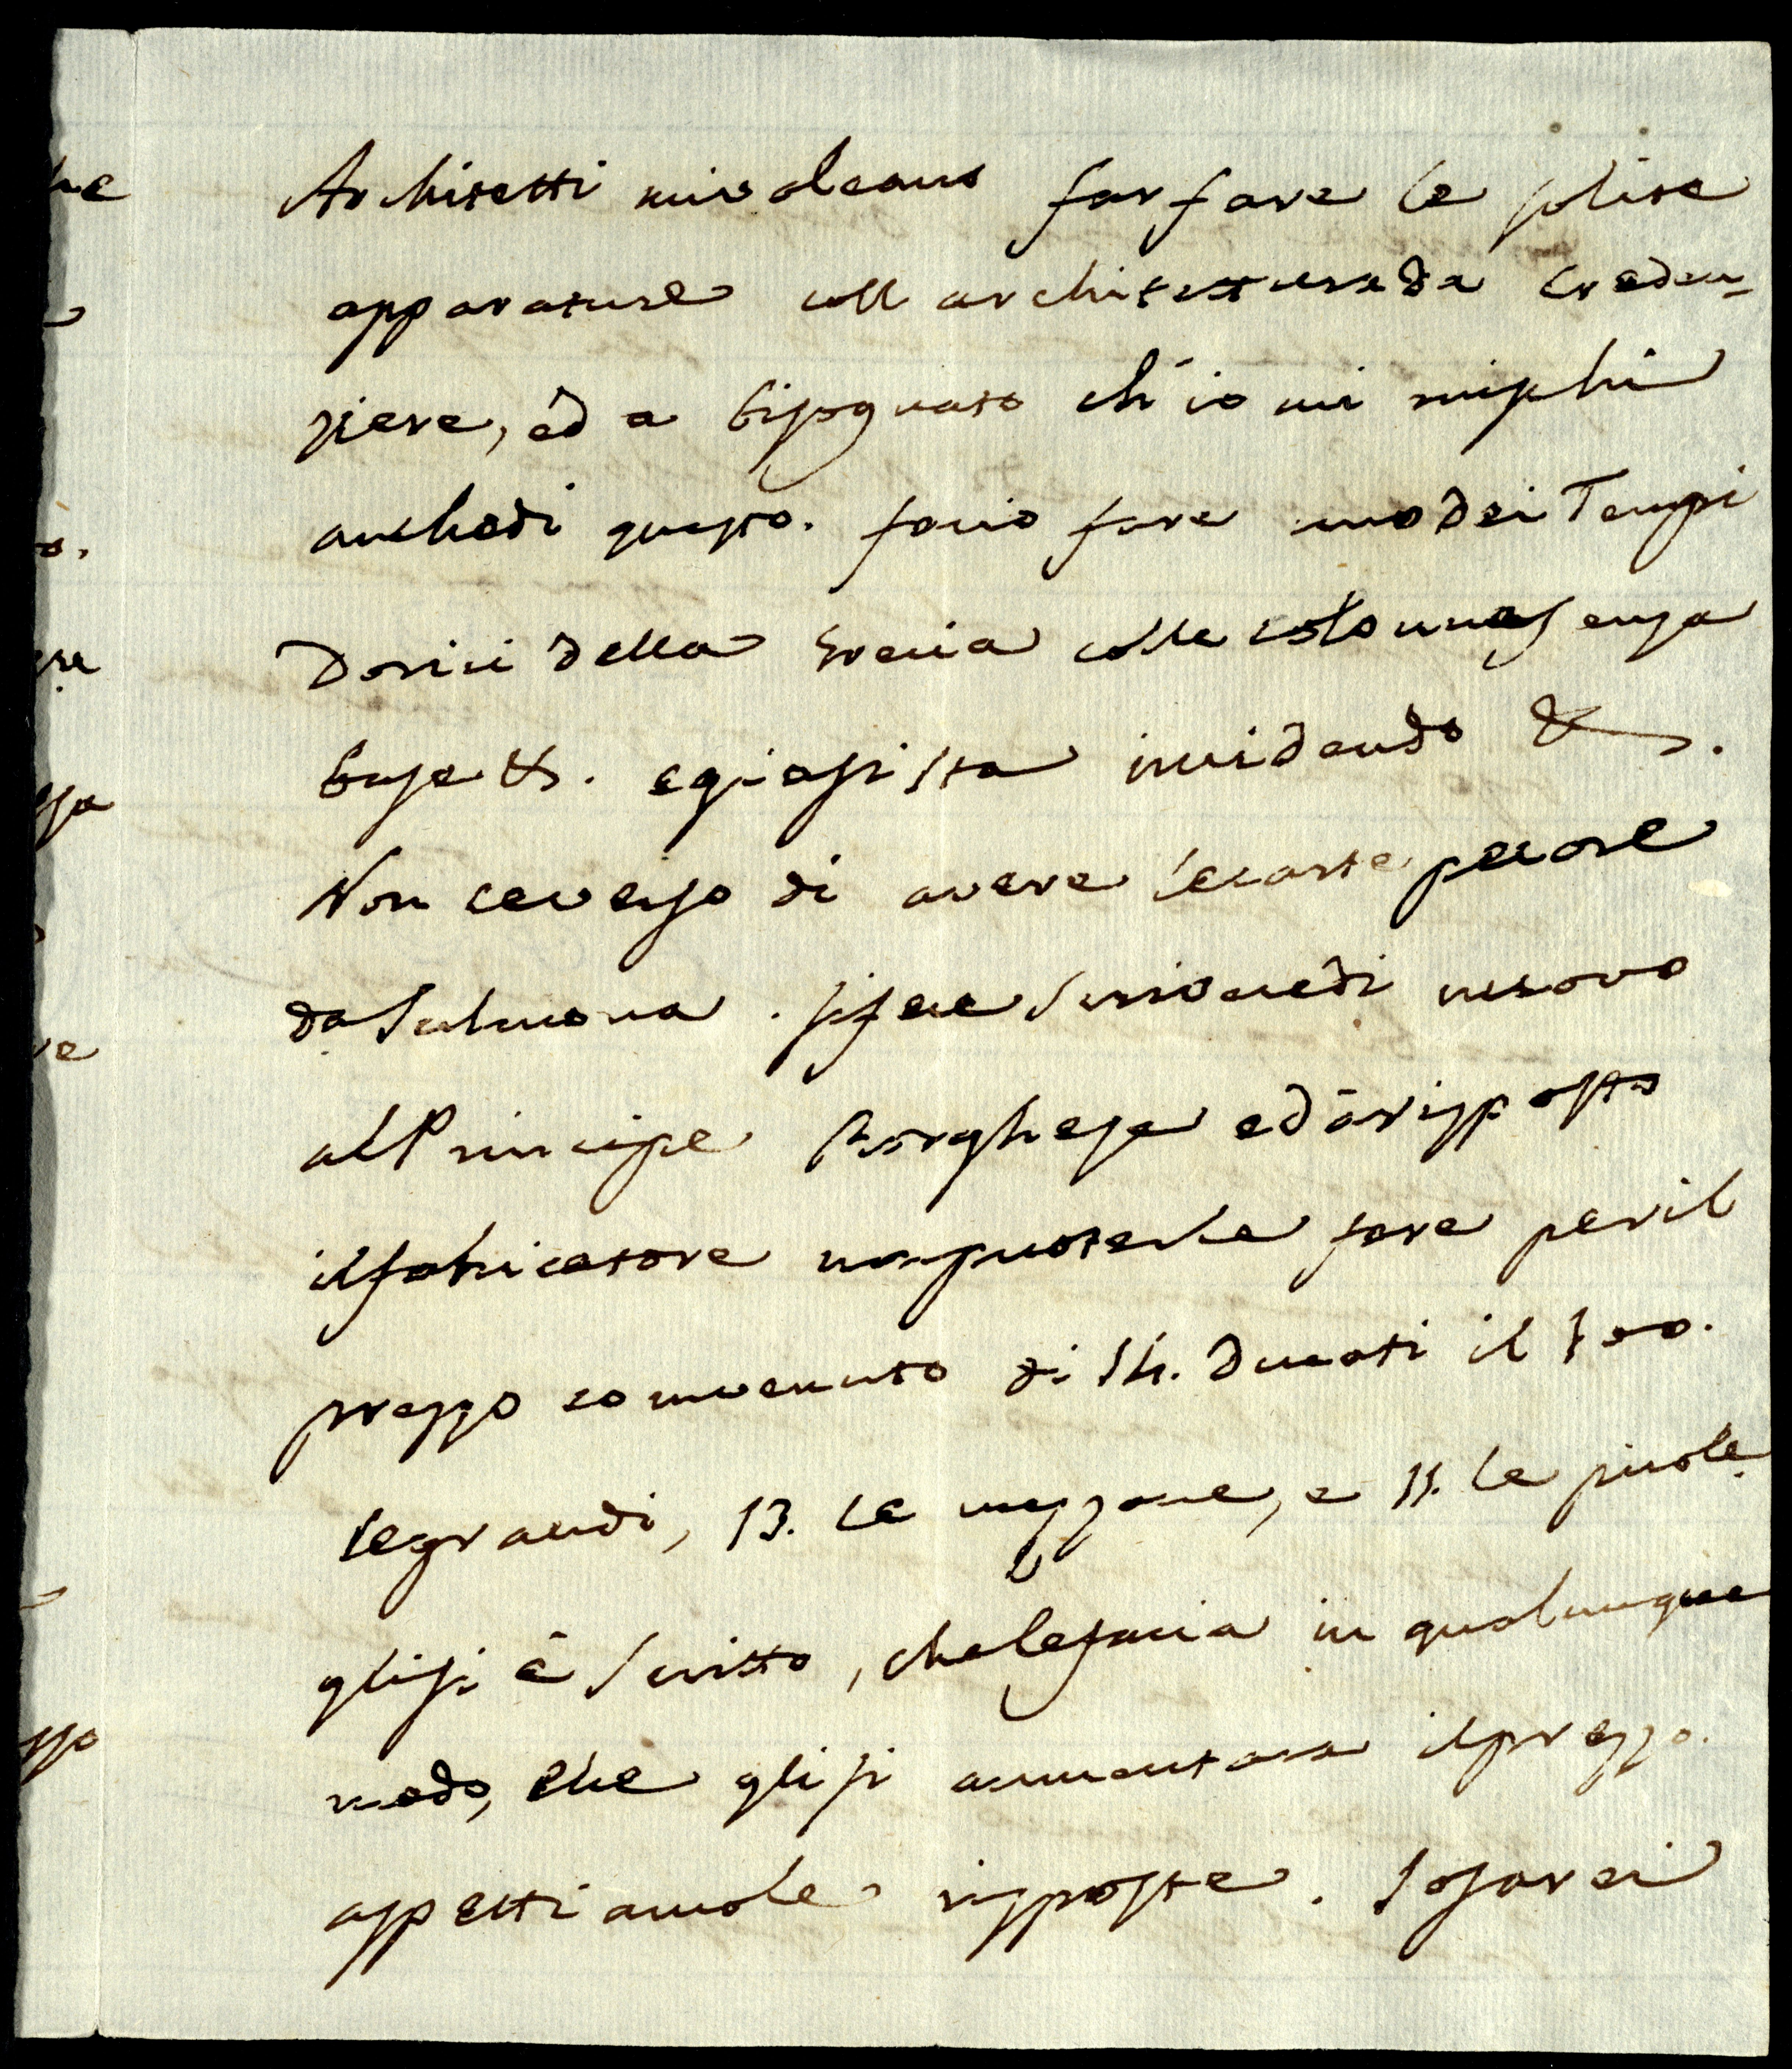 Architetti mi voleano far fare le solite
apparature coll architettura da creden-
ziere, ed a bisognato ch'io mi mischi
anche di questo. facio fare uno dei Tempi
Dorici della Grecia colle colonne senza
base &. e già si sta incidendo &.
Non ce verso di avere le carte pecore
da Sulmona. si fece scrivere di nuovo
al Principe Borghese ed à risposto
il fabricatore non poterle fare per il
prezzo convenuto di 14. ducati il 100.
le grandi, 13. le mezzane, e 11. le picole
gli si è scritto, che le facia in qualunque
modo, che gli si aumentara il prezzo.
aspettiamo le risposte. Io farei